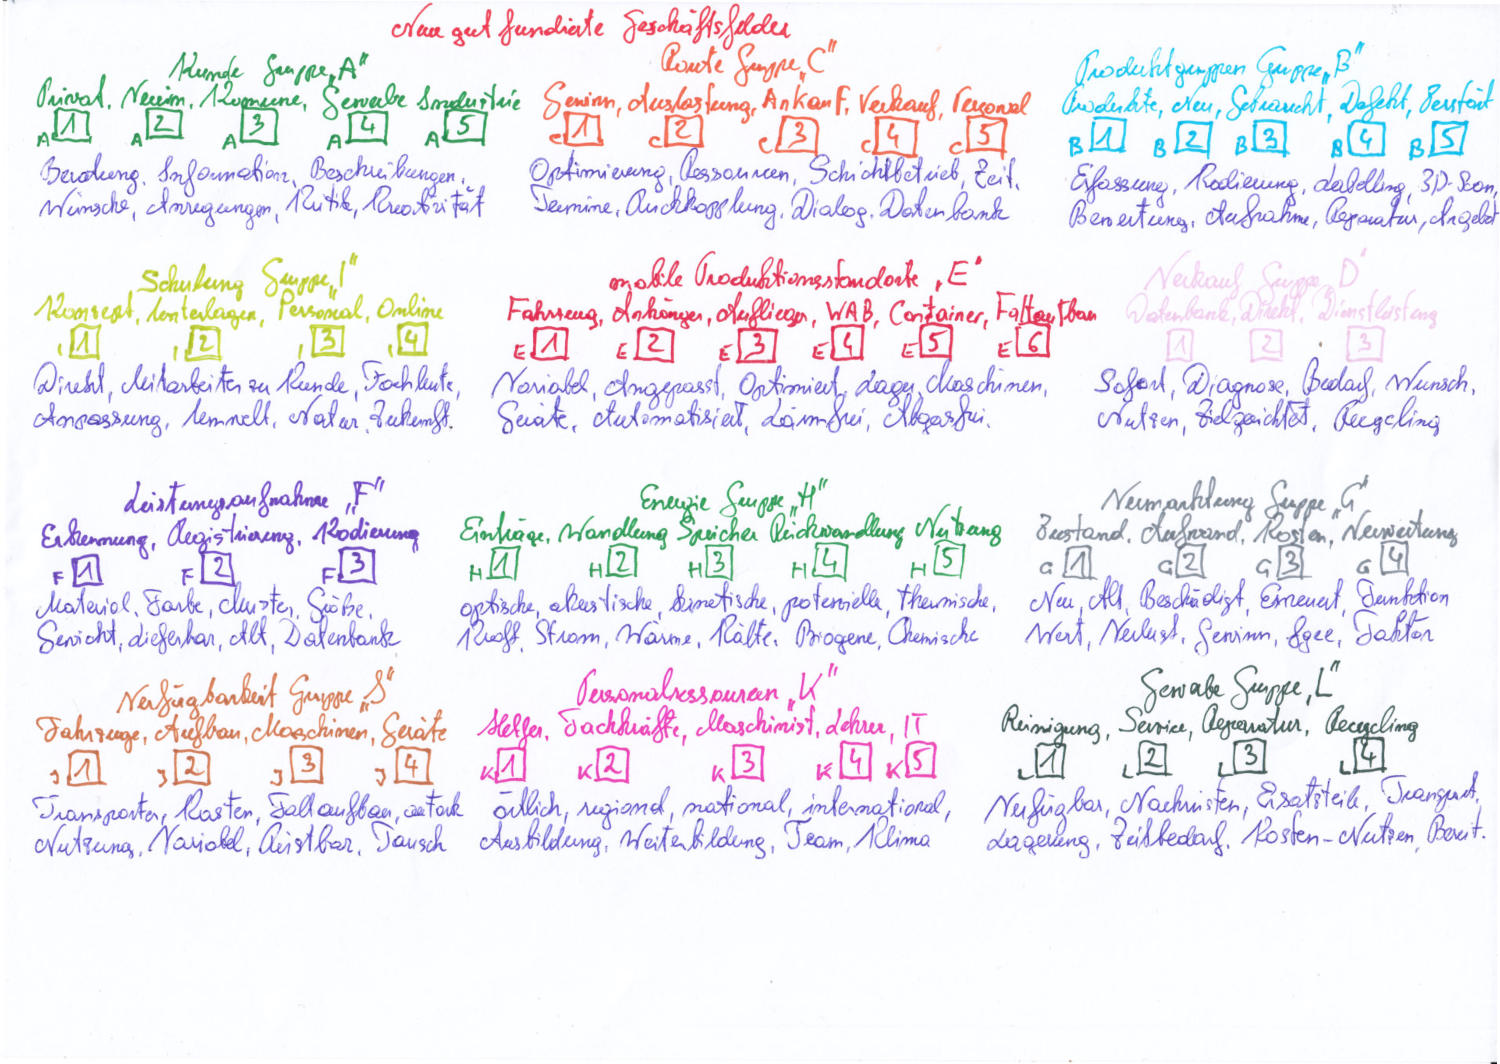 Neue gut fundierte Geschäftsfelder
Kunde Gruppe „A"
Privat, Verein, Komune, Gewerbe Industrie
A 1 A 2 A 3 A 4 A 5
Beratung, Information, Beschreibungen,
Wünsche, Anregungen, Kritik, Kreativität
Route Gruppe „C"
Gewinn, Auslastung, Ankauf, Verkauf, Personal
C 1 C 2 C 3 C 4 C 5
Optimierung, Ressourcen, Schichtbetrieb, Zeit,
Termine, Rückkopplung, Dialog, Datenbank
Produktgruppen Gruppe „B"
Produkte, Neu, Gebraucht, Defekt, Zerstört
B 1 B 2 B 3 B 4 B 5
Erfassung, Kodierung, Labelling, 3D-Scan,
Bewertung, Aufnahme, Reparatur, Angebot
Schulung Gruppe „I"
Konzept, Unterlagen, Personal, Online
I 1 I 2 I 3 I 4
Direkt, Mitarbeiter zu Kunde, Fachleute,
Anpassung, Umwelt, Natur, Zukunft.
mobile Produktionsstandorte „E"
Fahrzeug, Anhänger, Auflieger, WAB, Container, Faltaufbau
E 1 E 2 E 3 E 4 E 5 E 6
Variabel, Angepasst, Optimiert, Lager, Maschinen,
Geräte, Automatisiert, Lärmfrei, Abgasfrei.
Verkauf Gruppe „D
Datenbank, Direkt, Dienstleistung
1 2 3
Sofort, Diagnose, Bedarf, Wunsch,
Nutzen, Zielgerichtet, Recycling
Leistungsaufnahme „F"
Erkennung, Registrierung, Kodierung
F 1 F 2 F 3
Material, Farbe, Muster, Größe,
Gewicht, Lieferbar, Alt, Datenbank
Energie Gruppe „H"
Einträge, Wandlung Speicher Rückwandlung Nutzung
H 1 H 2 H 3 H 4 H 5
optische, akustische, kinetische, potenzielle, thermische,
Kraft, Strom, Wärme, Kälte, Biogene, Chemische
Vermarktung Gruppe „G"
Zustand, Aufwand, Kosten, Verwertung
G 1 G 2 G 3 G 4
Neu, Alt, Beschädigt, Erneuert, Funktion
Wert, Verlust, Gewinn, Faktor
Verfügbarkeit Gruppe „J"
Fahrzeuge, Aufbau, Maschinen, Geräte
J 1 J 2 J 3 J 4
Transporter, Kasten, Faltaufbau, autark
Nutzung, Variabel, Rüstbar, Tausch
Personalressourcen „K"
Helfer, Fachkräfte, Maschinist, Lehrer, IT
K 1 K 2 K 3 K 4 K 5
örtlich, regional, national, international,
Ausbildung, Weiterbildung, Team, Klima
Gewerbe Gruppe „L"
Reinigung, Service, Reparatur, Recycling
L 1 L 2 L 3 L 4
Verfügbar, Nachrüsten, Ersatzteile, Transport,
Lagerung, Zeitbedarf, Kosten-Nutzen, Bereit.